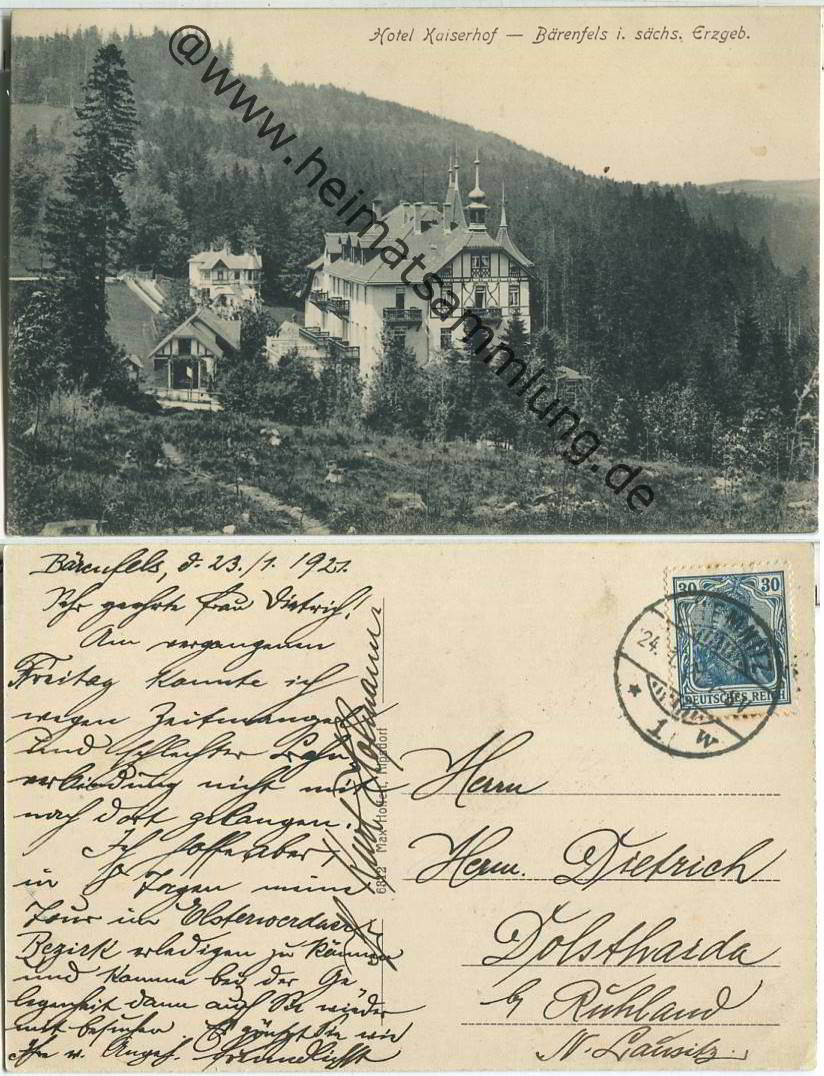 Hotel Kaiserhof — Bärenfels i. sächs. Erzgeb.
@www.heimatsammlung.de
Bärenfels, d. 23./1. 1921.
Sehr geehrte Frau Dietrich!
Am vergangenen
Freitag konnte ich
wegen Zeitmangel
und schlechter
verbindung nicht mit
nach dort gelangen.
Ich hoffe aber,
in 8 Tagen meine
Tour im Elsterwerdaer
Bezirk erledigen zu können
und komme bei der Ge
legenheit dann auch Sie wieder
mit besuchen. Es grüßt Sie wie
Ihre w. Angeh. freundlichst
Kurt Hofmann
6822 Max Kipsdorf
30 30
DEUTSCHES REICH
CHEMNITZ
24.
1
Herrn
Herm. Dietrich
Dolsthaida
b/ Ruhland
N.-Lausitz.